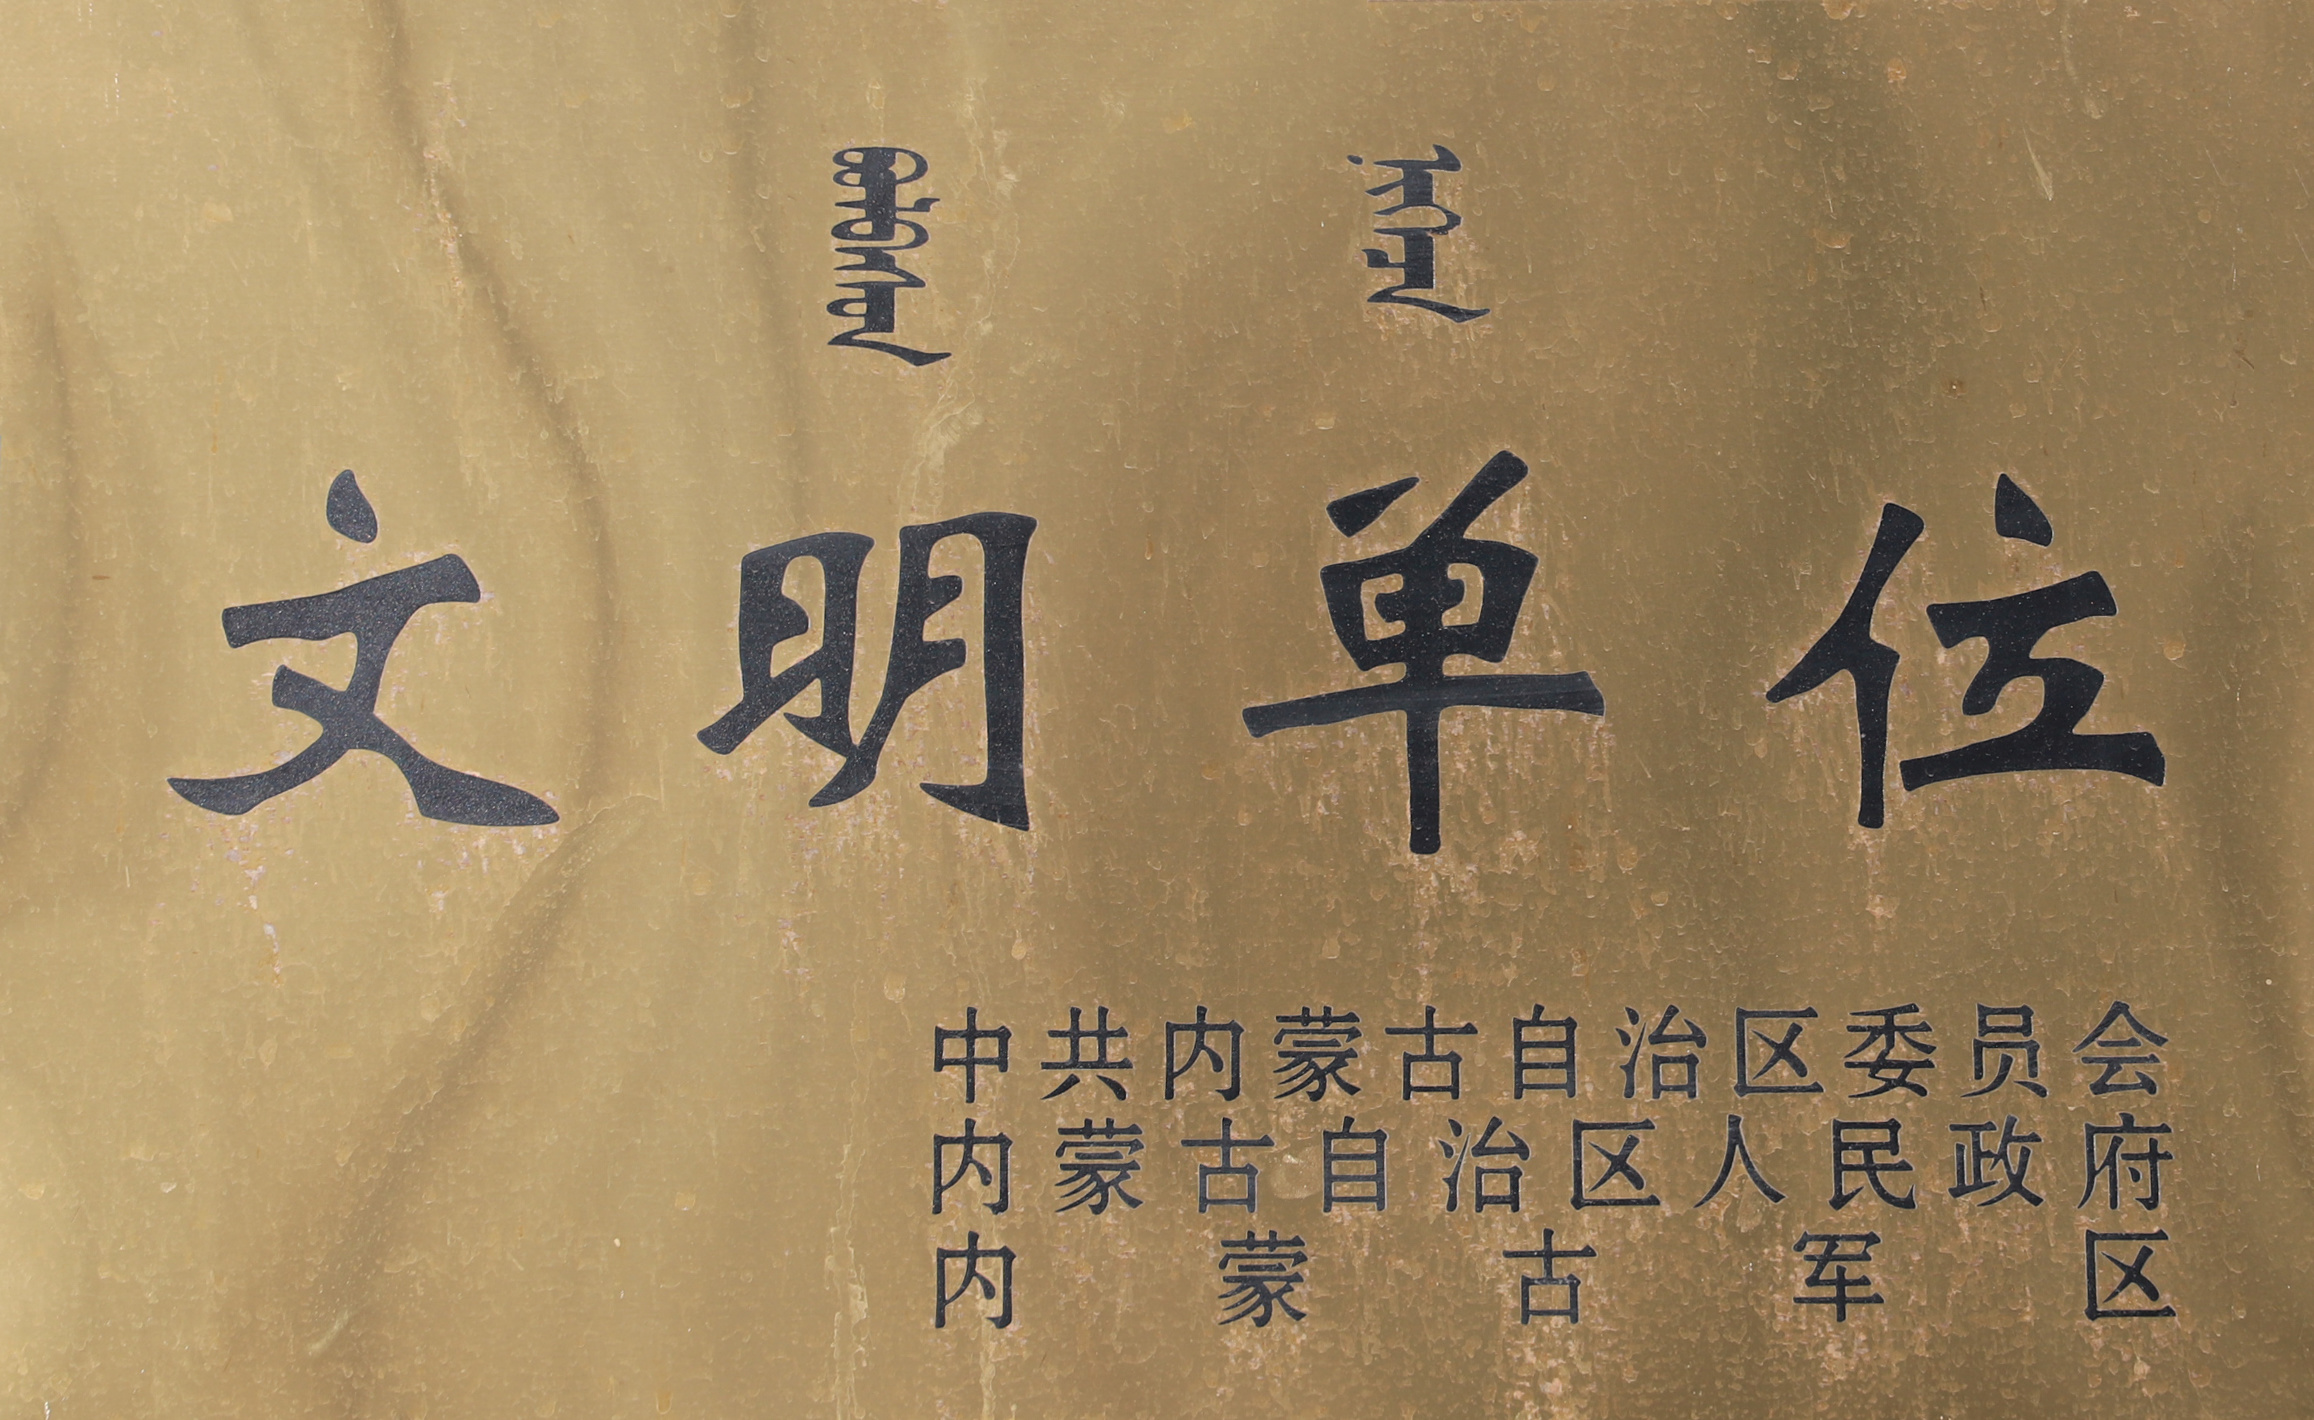 文明单位
中共内蒙古自治区委员会
内蒙古自治区人民政府
内蒙古军区